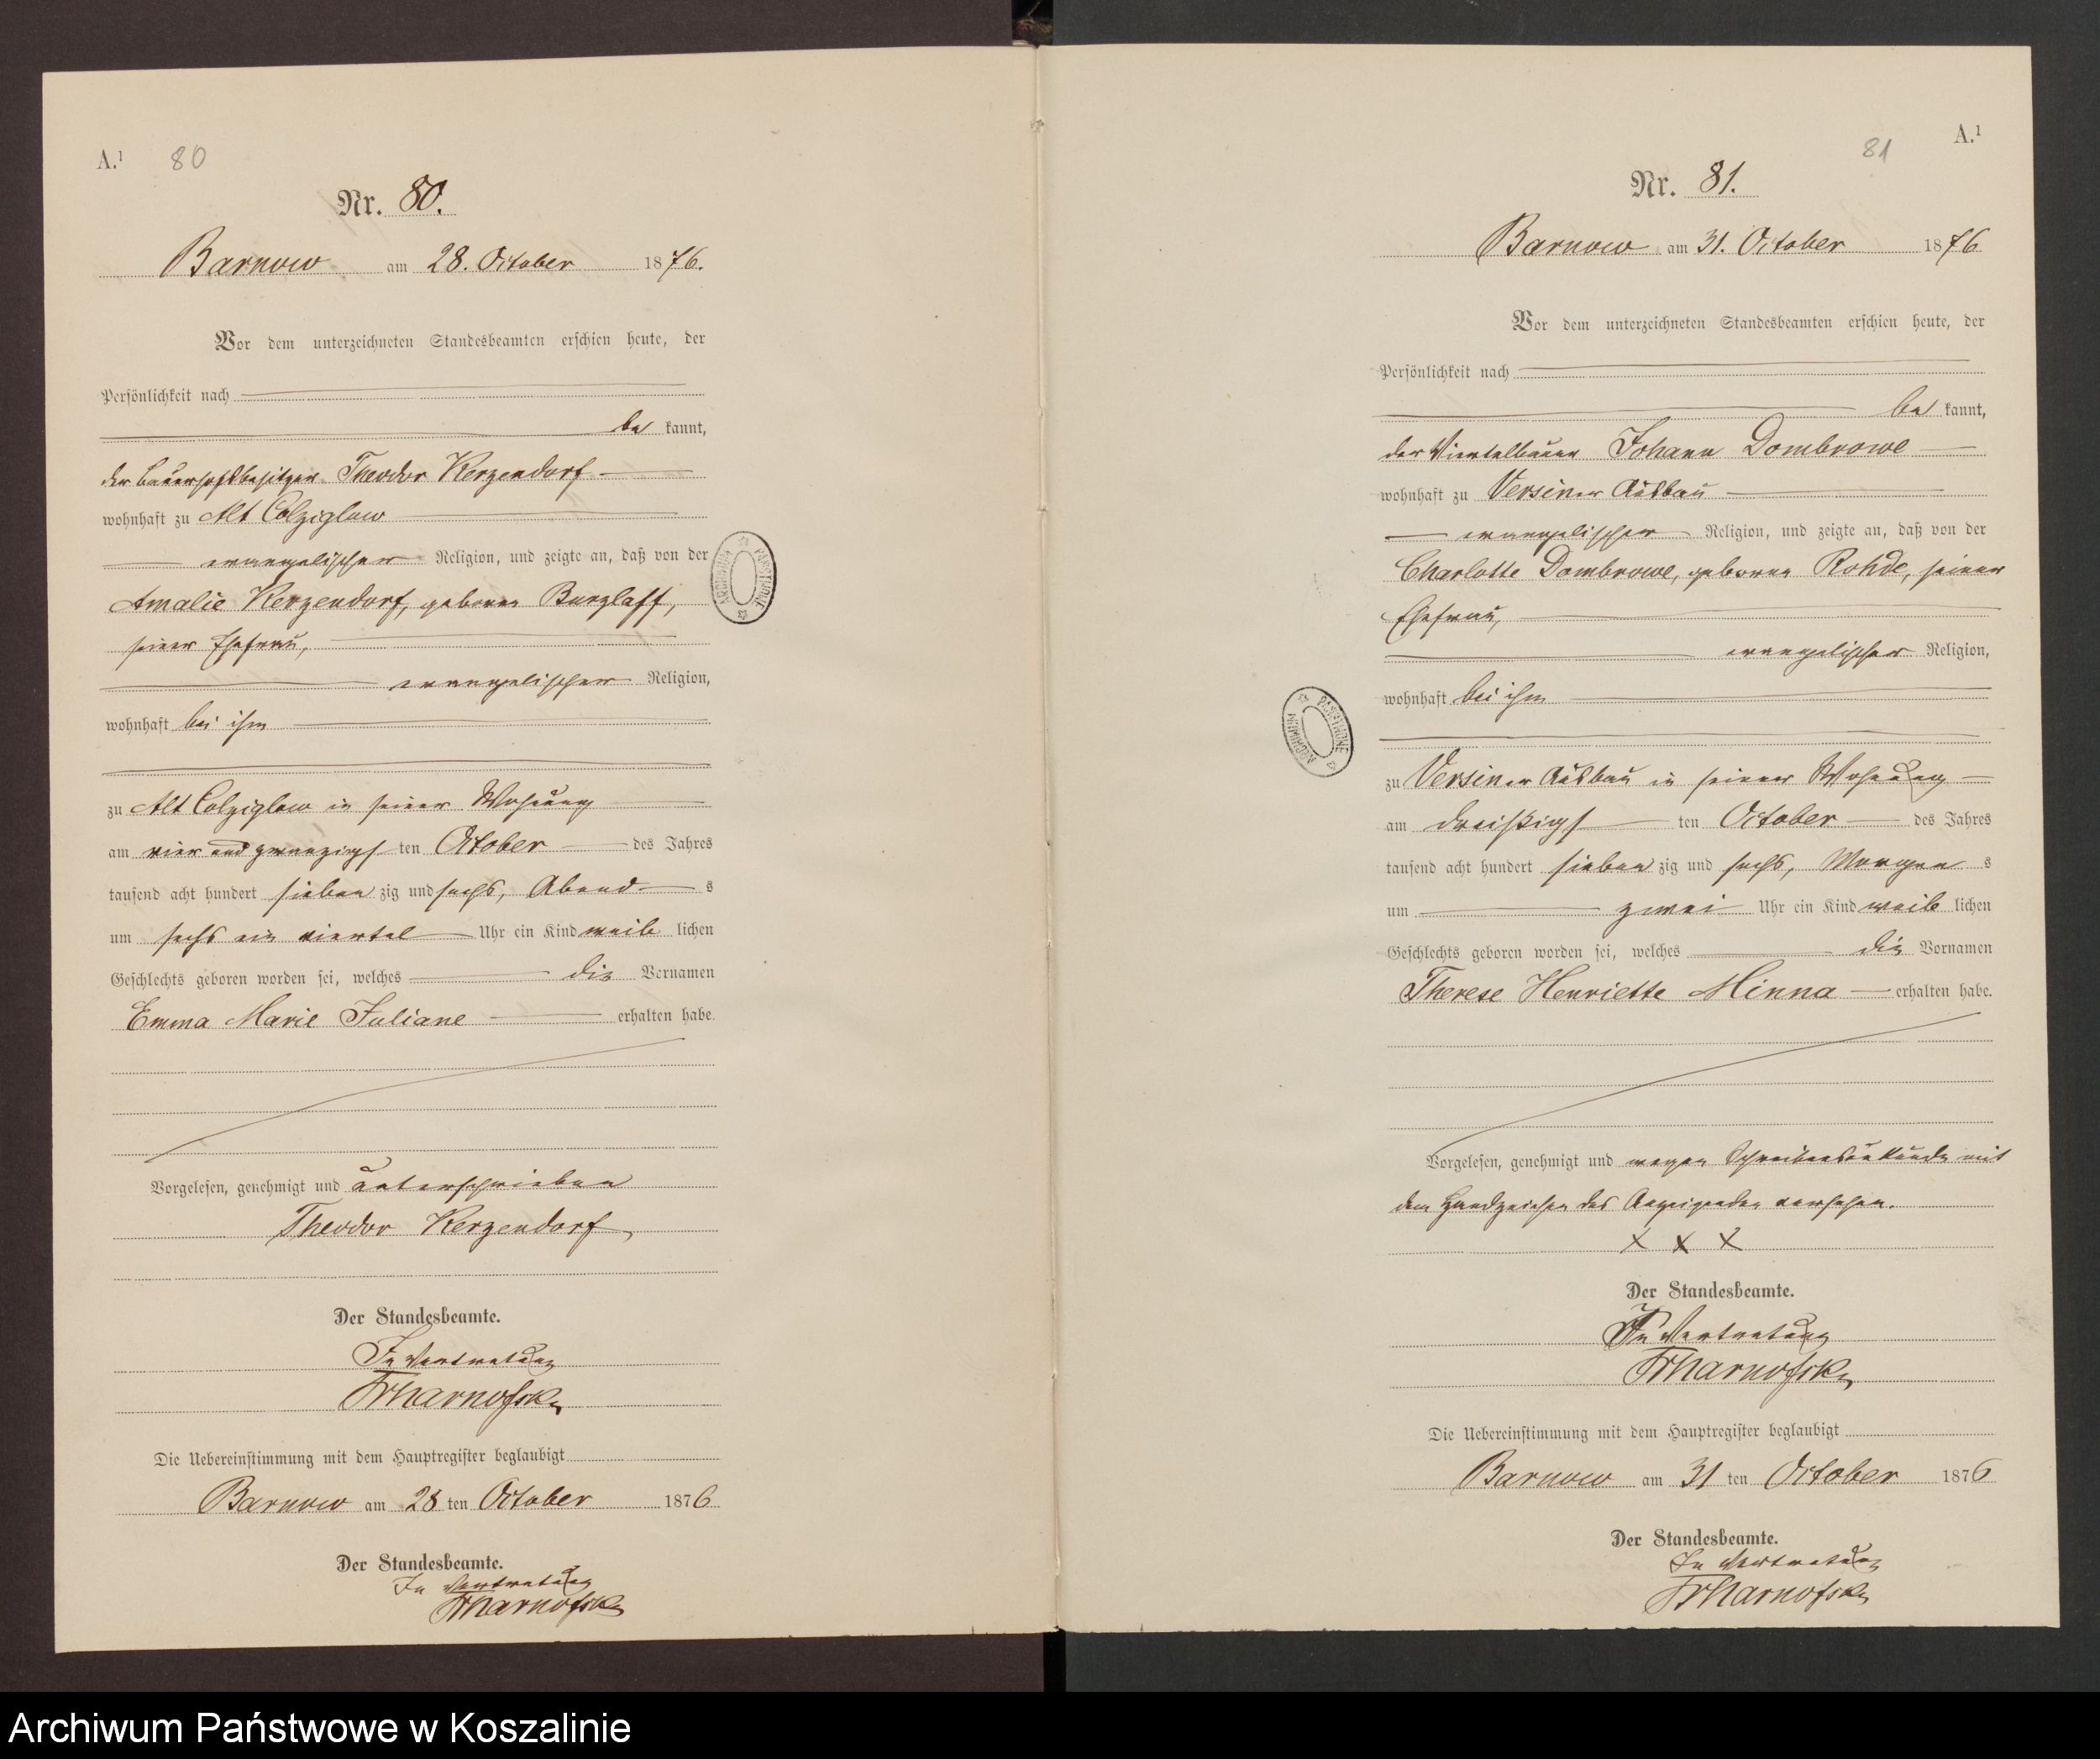 A.¹ 80
Nr. 80.
Barnow am 28. October 1876.
Vor dem unterzeichneten Standesbeamten erschien heute, der
Persönlichkeit nach
be kannt,
der Bauerhofsbesitzer Theodor Kerzendorf
wohnhaft zu Alt Colziglow
evangelischer Religion, und zeigte an, daß von der
Amalie Kerzendorf, geboren Burzlaff,
seiner Ehefrau,
evangelischer Religion,
wohnhaft bei ihm
zu Alt Colziglow in seiner Wohnung
am vier und zwanzigs ten October des Jahres
tausend acht hundert sieben zig und sechs, Abend s
um sechs ein viertel Uhr ein Kind weib lichen
Geschlechts geboren worden sei, welches die Vornamen
Emma Marie Juliane erhalten habe.
Vorgelesen, genehmigt und unterschrieben
Theodor Kerzendorf
Der Standesbeamte.
In Vertretung
Die Uebereinstimmung mit dem Hauptregister beglaubigt
Barnow am 28 ten October 1876
Der Standesbeamte.
In Vertretung
81 A.¹
Nr. 81.
Barnow am 31. October 1876
Vor dem unterzeichneten Standesbeamten erschien heute, der
Persönlichkeit nach
be kannt,
der Viertelbauer Johann Dombrowe
wohnhaft zu Versiner Ausbau
evangelischer Religion, und zeigte an, daß von der
Charlotte Dombrowe, geboren Rohde, seiner
Ehefrau,
evangelischer Religion,
wohnhaft bei ihm
zu Versiner Ausbau in seiner Wohnung
am dreißigs ten October des Jahres
tausend acht hundert sieben zig und sechs, Morgen s
um zwei Uhr ein Kind weib lichen
Geschlechts geboren worden sei, welches die Vornamen
Therese Henriette Minna erhalten habe.
Vorgelesen, genehmigt und wegen Schreibensunkunde mit
dem Handzeichen des Anzeigenden versehen.
X X X
Der Standesbeamte.
In Vertretung
Die Uebereinstimmung mit dem Hauptregister beglaubigt
Barnow am 31 ten October 1876
Der Standesbeamte.
In Vertretung
Archiwum Państwowe w Koszalinie